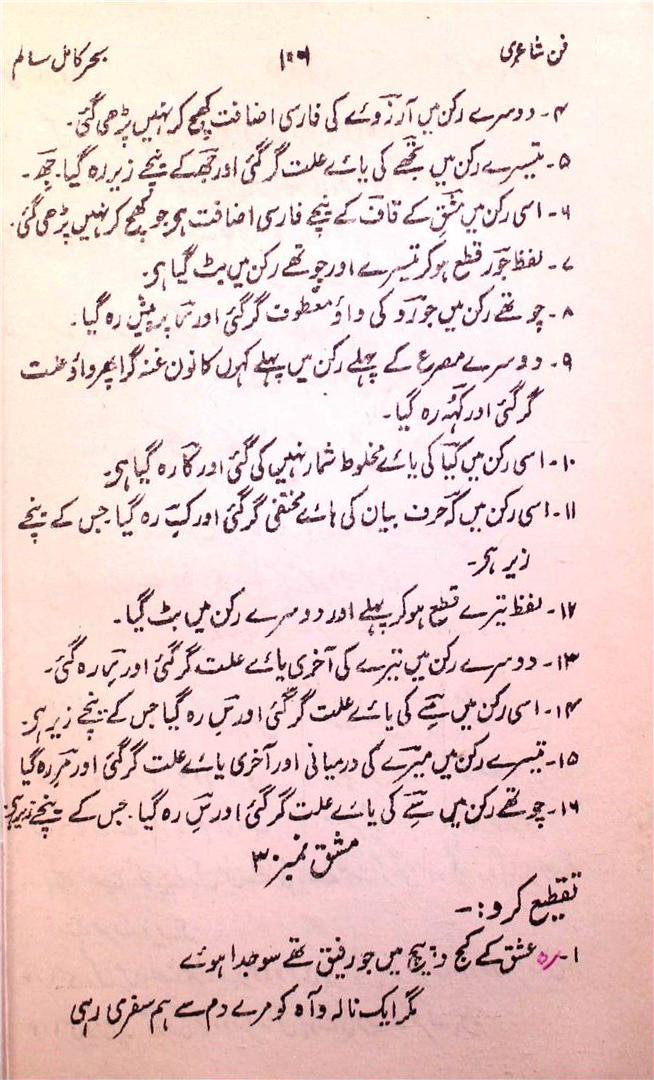 فن شاعری ۱۰۶ بحر کامل سالم
۴۔ دوسرے رکن میں آرزوئے کی فارسی اضافت کھچ کر نہیں پڑھی گئی۔
۵۔ تیسرے رکن میں تجھے کی یائے علت گر گئی اور جھ کے نیچے زیر رہ گیا۔ جھِ۔
۶۔ اسی رکن میں عشق کے قاف کے نیچے فارسی اضافت ہی جو کھچ کر نہیں پڑھی گئی۔
۷۔ لفظ جور قطع ہو کر تیسرے اور چوتھے رکن میں بٹ گیا ہی۔
۸۔ چوتھے رکن میں جور و کی واؤ معطوف گر گئی اور ر پر پیش رہ گیا۔
۹۔ دوسرے مصرع کے پہلے رکن میں پہلے کہوں کا نون غنہ گرا پھر واؤ علت
گر گئی اور کہُ رہ گیا۔
۱۰۔ اسی رکن میں کیا کی یائے مخلوط شمار نہیں کی گئی اور کا رہ گیا ہی۔
۱۱۔ اسی رکن میں کہ حرف بیان کی ہائے مختفی گر گئی اور کِ رہ گیا جس کے نیچے
زیر ہی۔
۱۲۔ لفظ تیرے قطع ہو کر پہلے اور دوسرے رکن میں بٹ گیا۔
۱۳۔ دوسرے رکن میں تیرے کی آخری یائے علت گر گئی اور رِ رہ گئی۔
۱۴۔ اسی رکن میں سے کی یائے علت گر گئی اور سِ رہ گیا جس کے نیچے زیر ہی۔
۱۵۔ تیسرے رکن میں میرے کی درمیانی اور آخری یائے علت گر گئی اور مرِ رہ گیا
۱۶۔ چوتھے رکن میں سے کی یائے علت گر گئی اور سِ رہ گیا۔ جس کے نیچے زیر ہی۔
مشق نمبر ۳
تقطیع کرو:۔
۱۔ رہ عشق کے کج و پیچ میں جو رفیق تھے سو جدا ہوئے
مگر ایک نالہ و آہ کو مرے دم سے ہم سفری رہی